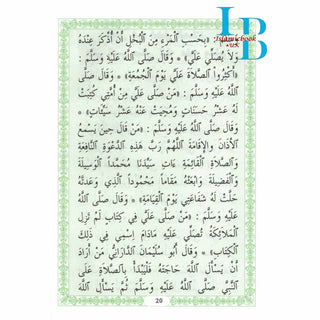 LB
Islamicbook
.uk
وَسَلَّمَ : «بِحَسْبِ ٱلْمَرْءِ مِنَ ٱلْبُخْلِ أَنْ أُذْكَرَ عِنْدَهُ
وَلاَ يُصَلِّي عَلَيَّ» * وَقَالَ صَلَّى ٱللَّهُ عَلَيْهِ وَسَلَّمَ :
«أَكْثِرُوا ٱلصَّلاَةَ عَلَيَّ يَوْمَ ٱلْجُمُعَةِ» * وَقَالَ صَلَّى
ٱللَّهُ عَلَيْهِ وَسَلَّمَ : «مَنْ صَلَّى عَلَيَّ مِنْ أُمَّتِي كُتِبَتْ
لَهُ عَشْرُ حَسَنَاتٍ وَمُحِيَتْ عَنْهُ عَشْرُ سَيِّئَاتٍ» *
وَقَالَ صَلَّى ٱللَّهُ عَلَيْهِ وَسَلَّمَ : «مَنْ قَالَ حِينَ يَسْمَعُ
ٱلأَذَانَ وَٱلإِقَامَةَ ٱللَّهُمَّ رَبَّ هَذِهِ ٱلدَّعْوَةِ ٱلنَّافِعَةِ
وَٱلصَّلاَةِ ٱلْقَائِمَةِ آتِ سَيِّدَنَا مُحَمَّداً ٱلْوَسِيلَةَ
وَٱلْفَضِيلَةَ وَٱبْعَثْهُ مَقَاماً مَحْمُوداً ٱلَّذِي وَعَدْتَهُ
حَلَّتْ لَهُ شَفَاعَتِي يَوْمَ ٱلْقِيَامَةِ» * وَقَالَ صَلَّى ٱللَّهُ
عَلَيْهِ وَسَلَّمَ : «مَنْ صَلَّى عَلَيَّ فِي كِتَابٍ لَمْ تَزَلِ
ٱلْمَلاَئِكَةُ تُصَلِّي عَلَيْهِ مَادَامَ ٱسْمِي فِي ذَلِكَ
ٱلْكِتَابِ» * وَقَالَ أَبُو سُلَيْمَانَ ٱلدَّارَانِيُّ مَنْ أَرَادَ
أَنْ يَسْأَلَ ٱللَّهَ حَاجَتَهُ فَلْيَبْدَأْ بِٱلصَّلاَةِ عَلَى
ٱلنَّبِيِّ صَلَّى ٱللَّهُ عَلَيْهِ وَسَلَّمَ ثُمَّ يَسْأَلُ ٱللَّهَ
20